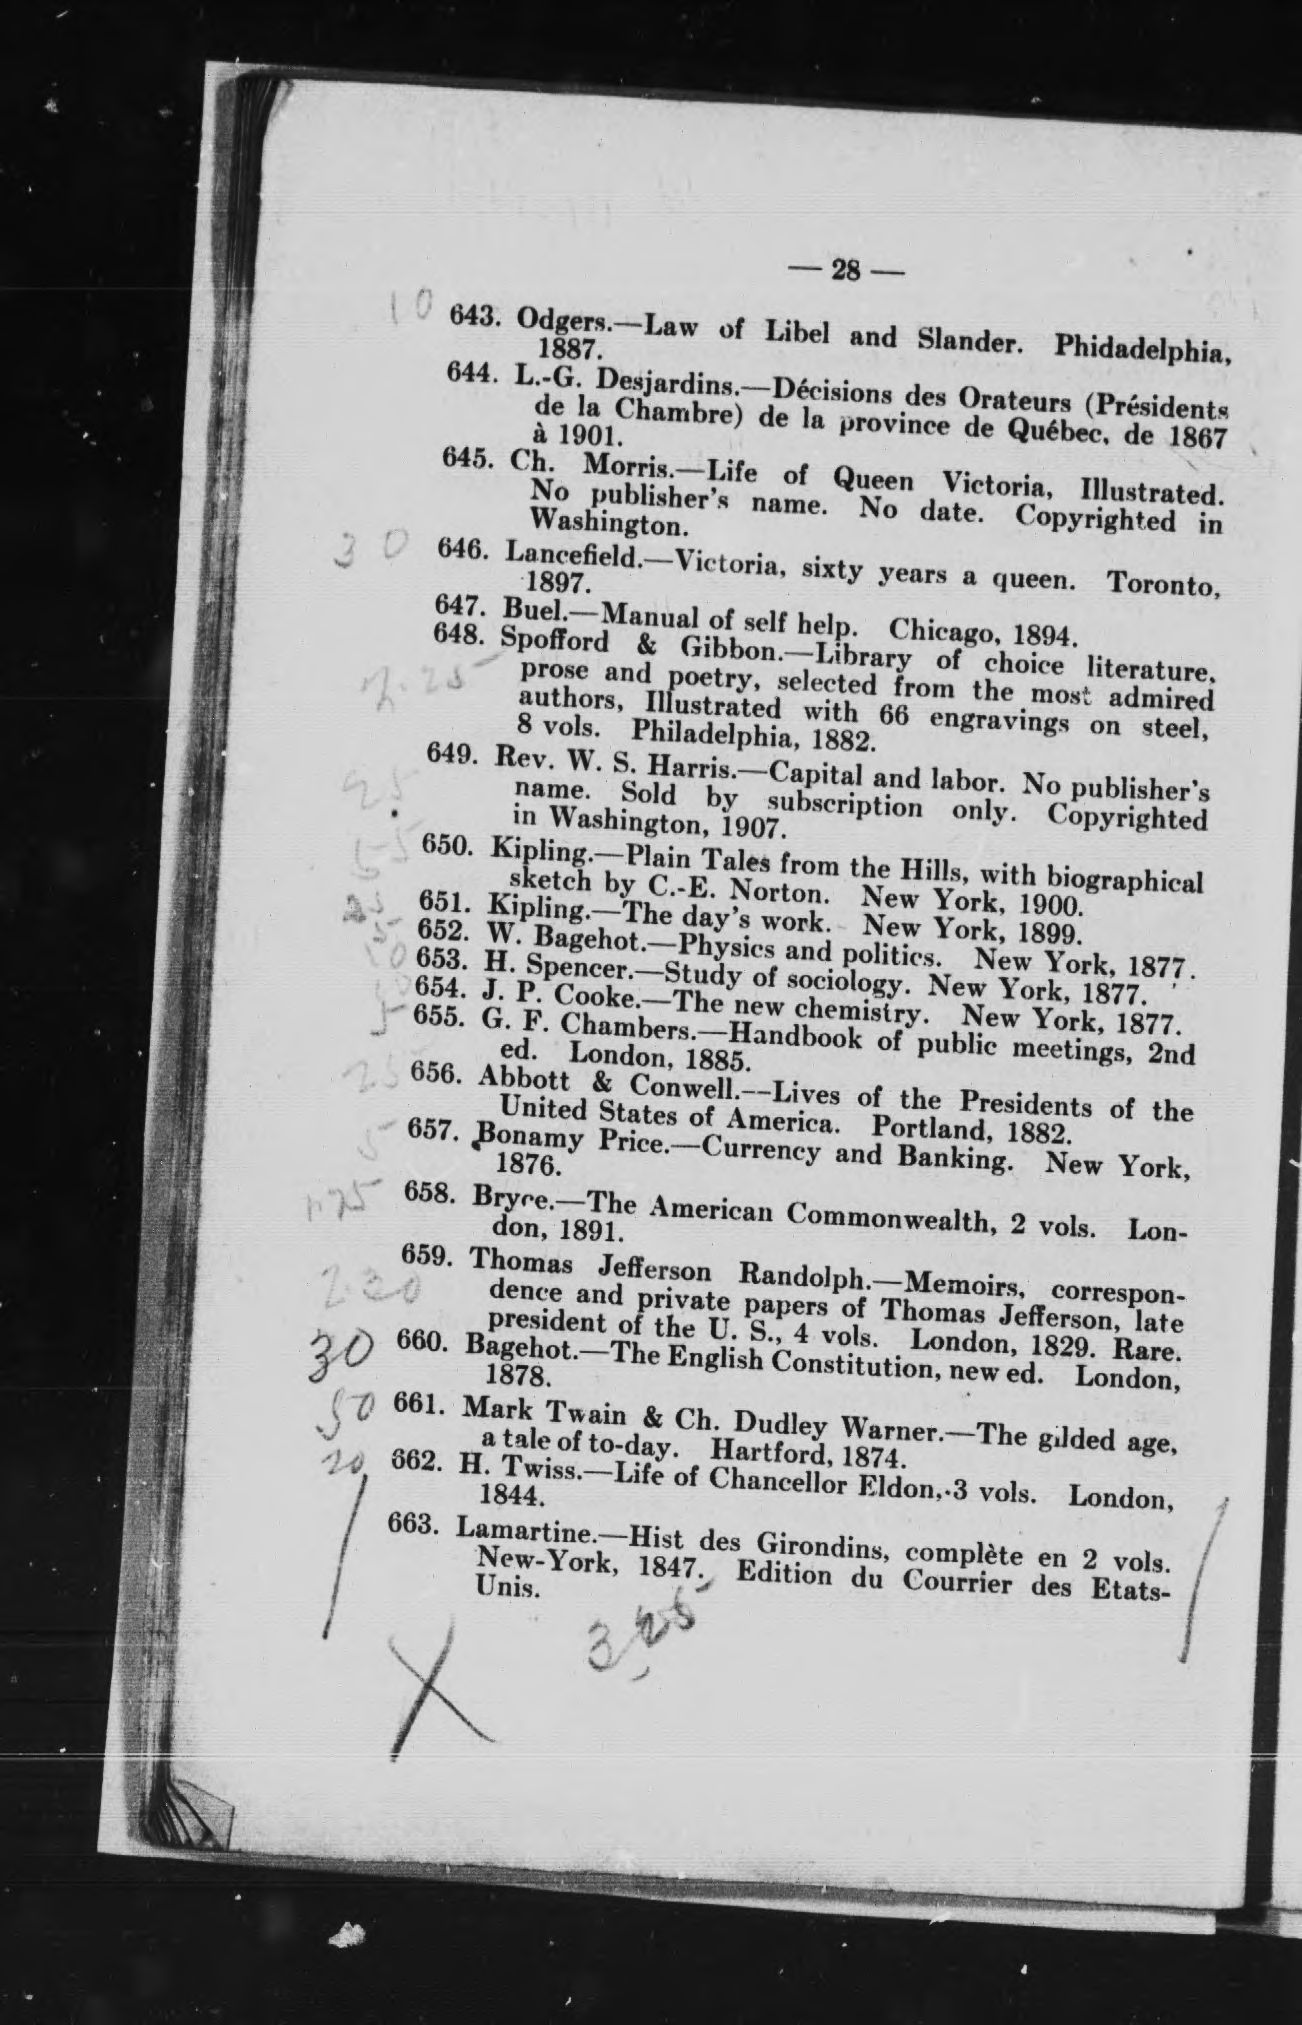 — 28 —
10 643. Odgers.—Law of Libel and Slander. Phidadelphia,
1887.
644. L.-G. Desjardins.—Décisions des Orateurs (Présidents
de la Chambre) de la province de Québec, de 1867
à 1901.
645. Ch. Morris.—Life of Queen Victoria, Illustrated.
No publisher's name. No date. Copyrighted in
Washington.
30 646. Lancefield.—Victoria, sixty years a queen. Toronto,
1897.
647. Buel.—Manual of self help. Chicago, 1894.
648. Spofford & Gibbon.—Library of choice literature,
2.25 prose and poetry, selected from the most admired
authors, Illustrated with 66 engravings on steel,
8 vols. Philadelphia, 1882.
649. Rev. W. S. Harris.—Capital and labor. No publisher's
name. Sold by subscription only. Copyrighted
in Washington, 1907.
650. Kipling.—Plain Tales from the Hills, with biographical
sketch by C.-E. Norton. New York, 1900.
25 651. Kipling.—The day's work. New York, 1899.
5 652. W. Bagehot.—Physics and politics. New York, 1877.
10 653. H. Spencer.—Study of sociology. New York, 1877.
654. J. P. Cooke.—The new chemistry. New York, 1877.
5 655. G. F. Chambers.—Handbook of public meetings, 2nd
ed. London, 1885.
25 656. Abbott & Conwell.—Lives of the Presidents of the
United States of America. Portland, 1882.
5 657. Bonamy Price.—Currency and Banking. New York,
1876.
1.75 658. Bryce.—The American Commonwealth, 2 vols. Lon-
don, 1891.
659. Thomas Jefferson Randolph.—Memoirs, correspon-
2.30 dence and private papers of Thomas Jefferson, late
president of the U. S., 4 vols. London, 1829. Rare.
30 660. Bagehot.—The English Constitution, new ed. London,
1878.
50 661. Mark Twain & Ch. Dudley Warner.—The gilded age,
a tale of to-day. Hartford, 1874.
20 662. H. Twiss.—Life of Chancellor Eldon, 3 vols. London,
1844.
663. Lamartine.—Hist des Girondins, complète en 2 vols.
New-York, 1847. Edition du Courrier des Etats-
Unis.
X